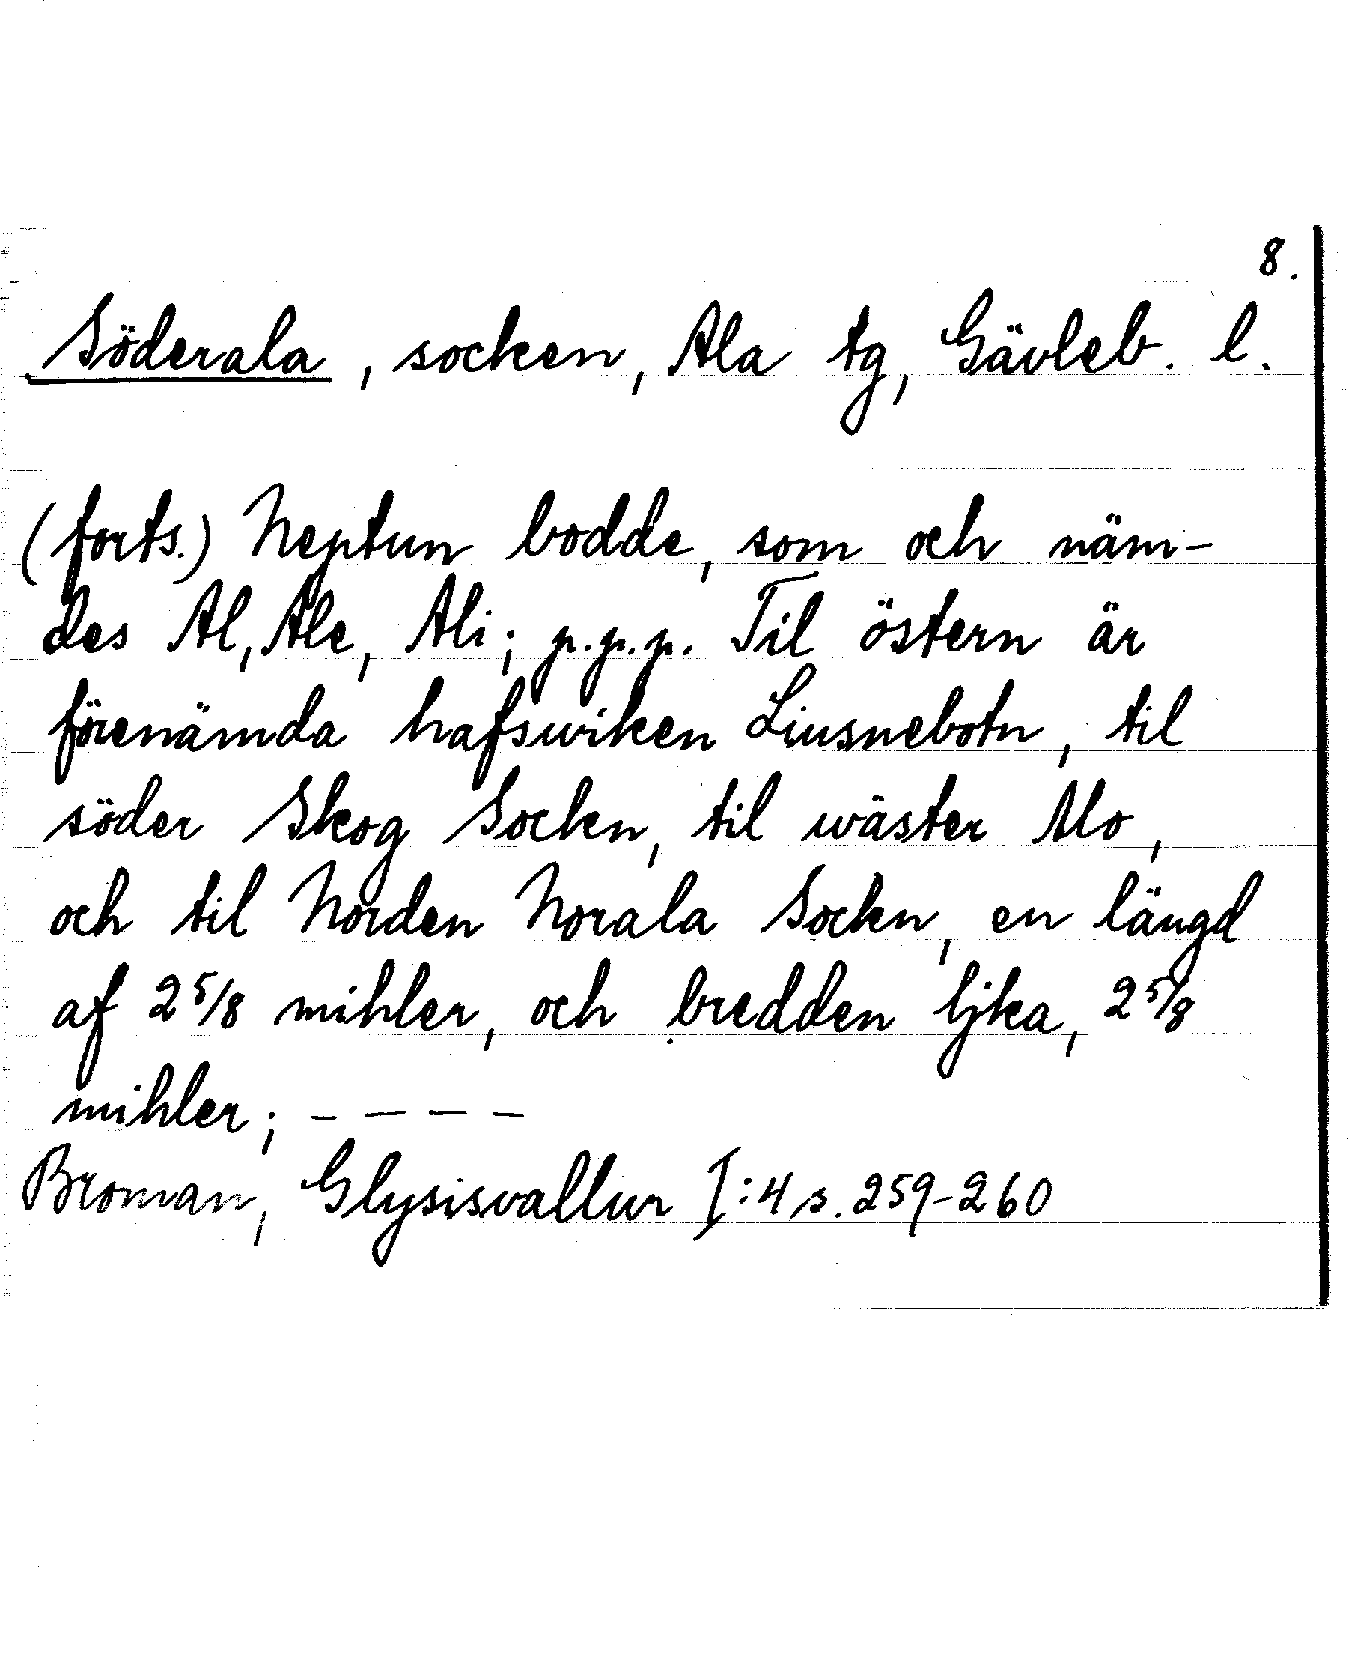 8.
Söderala, socken, Ala tg, Gävleb. l.
(forts.) Neptun bodde, som och näm-
des Al, Ale, Ali; p.p.p. Til östern är
förenämda hafswiken Liusnebotn, til
söder Skog Sockn, til wäster Mo,
och til Norden Norala Sockn, en längd
af 2 5/8 mihler, och bredden ljka, 2 5/8
mihler; - - - -
Broman, Glysisvallur I:4 s. 259-260